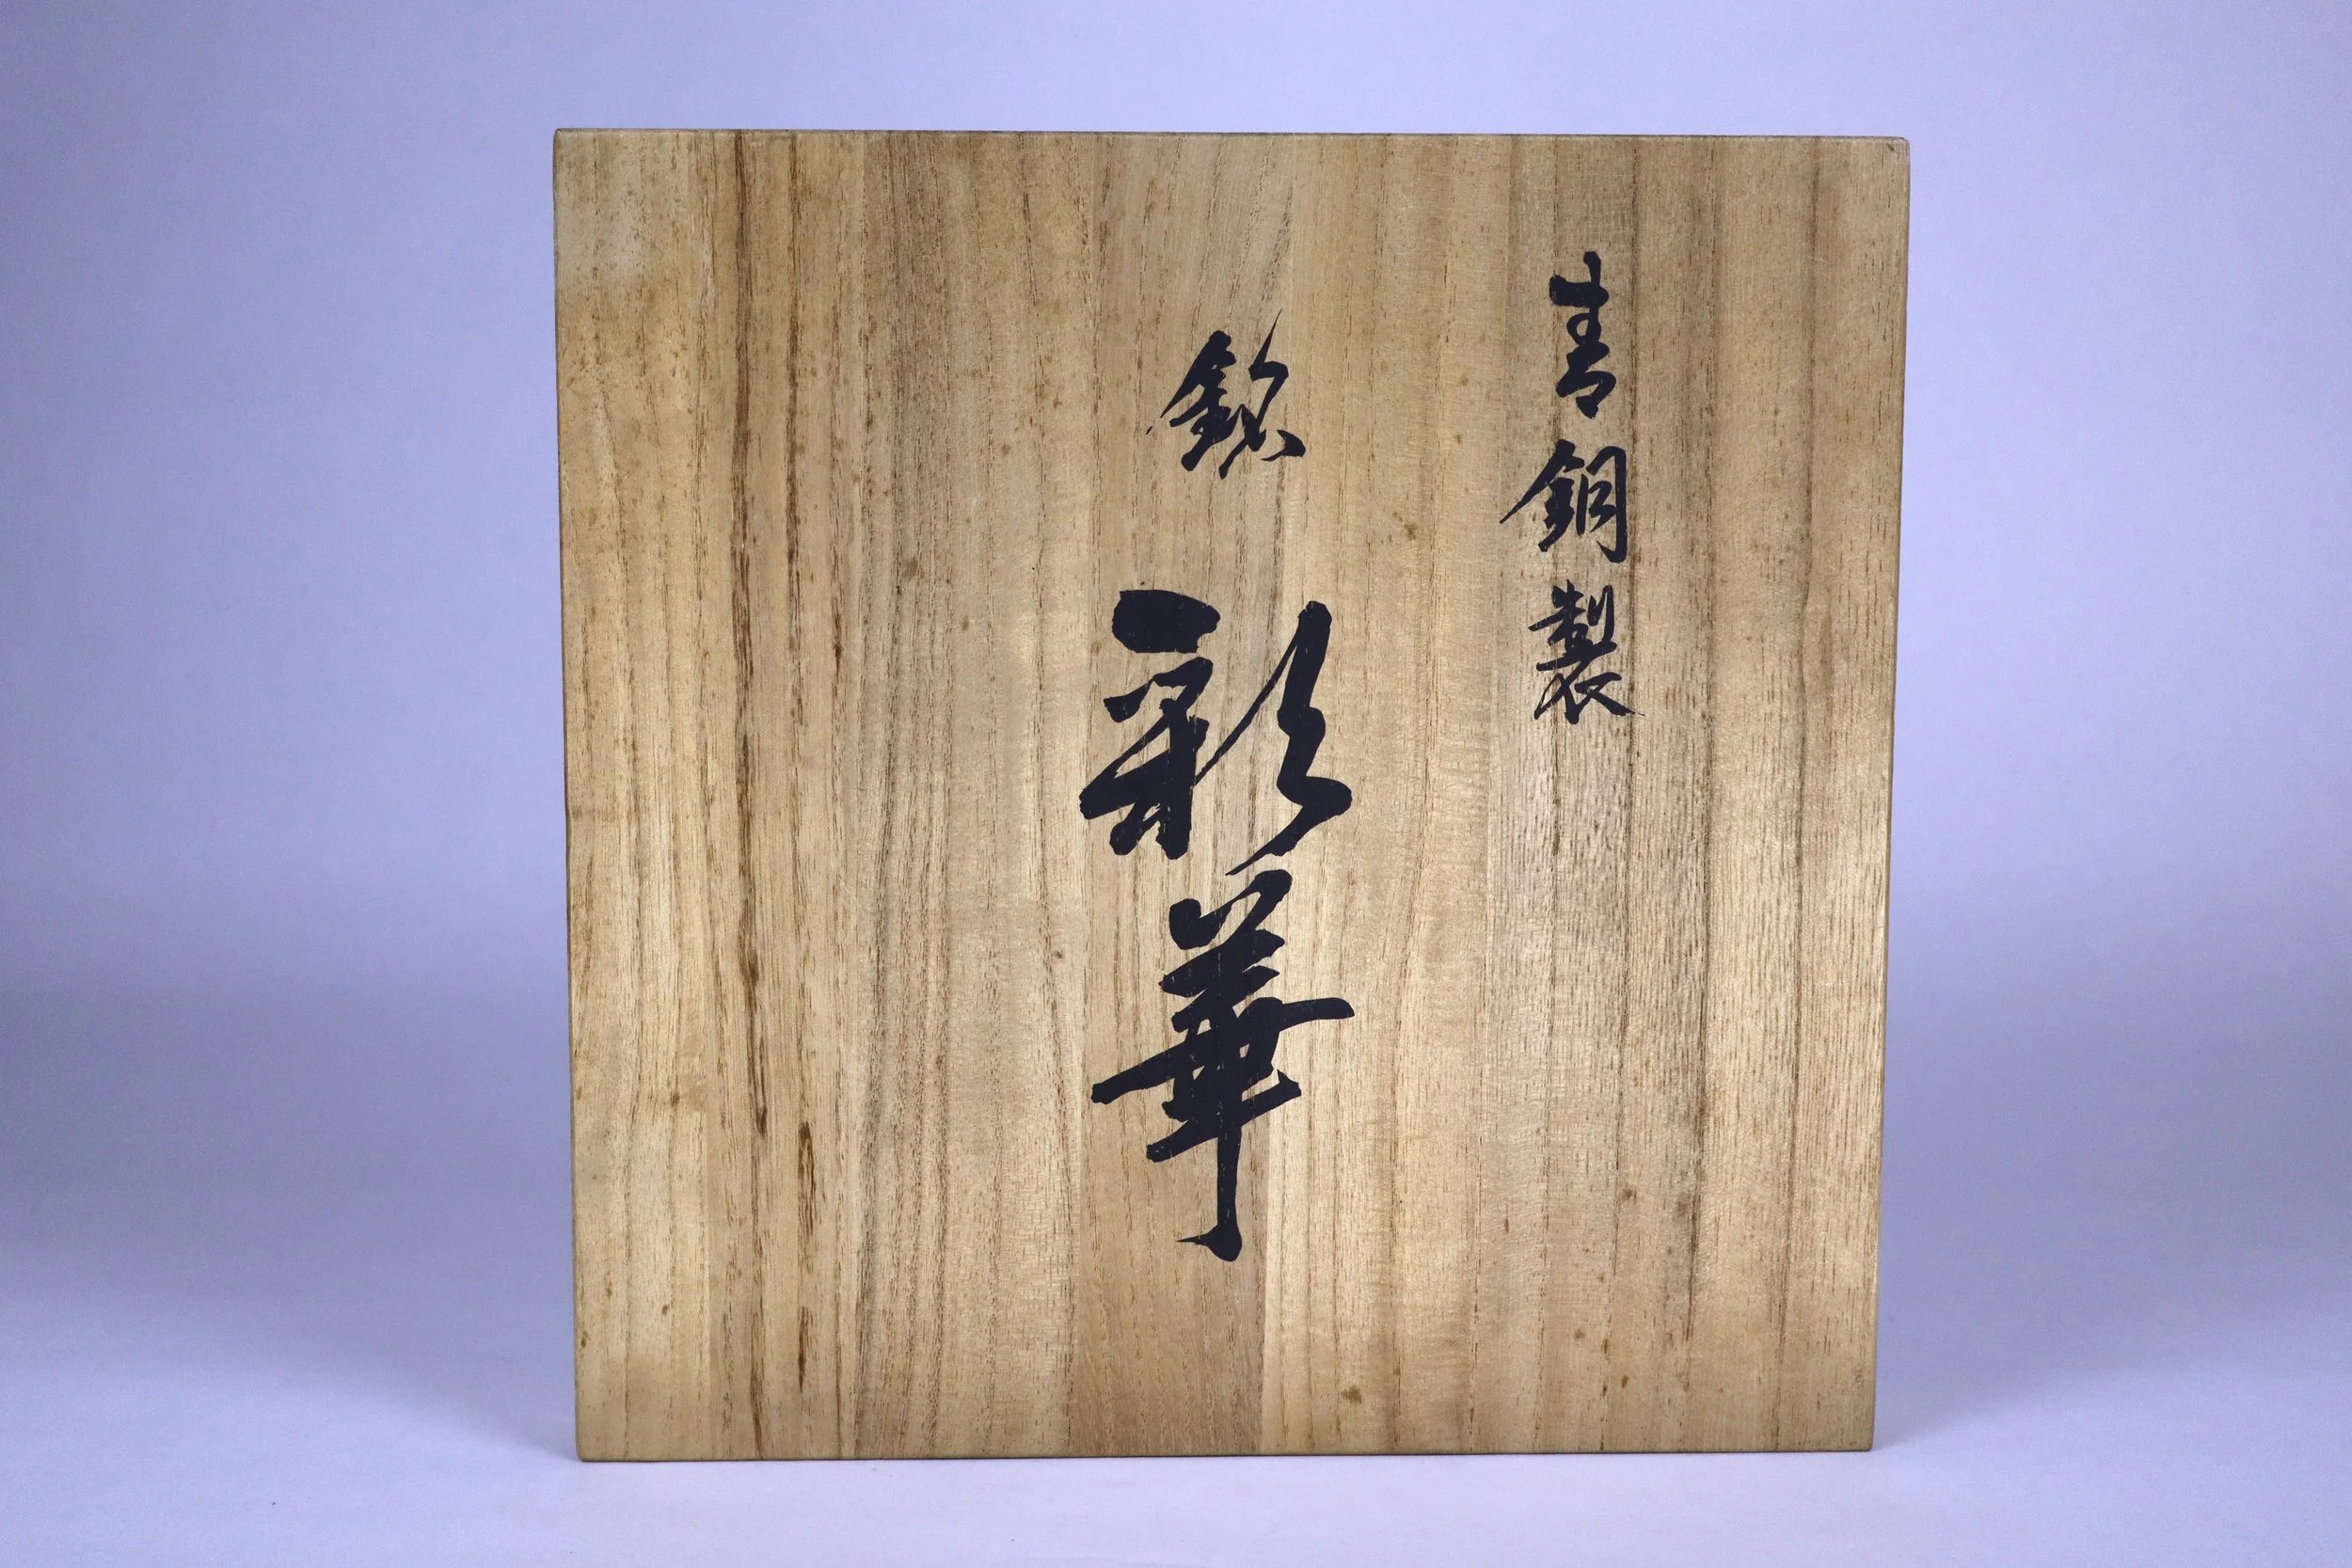 青銅製
銘 彩華